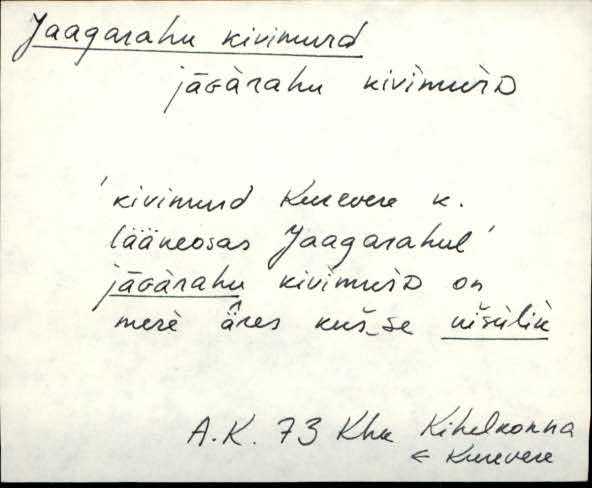 Jaagarahu kivimurd
jāɢàrahu kivìmuìᴅ
'kivimurd Kurevere k.
lääneosas Jaagarahul'
jāɢàrahu kivìmuìᴅ on
merè ä̂res kuš_se
A.K. 73 Khk Kihelkonna
< Kurevere